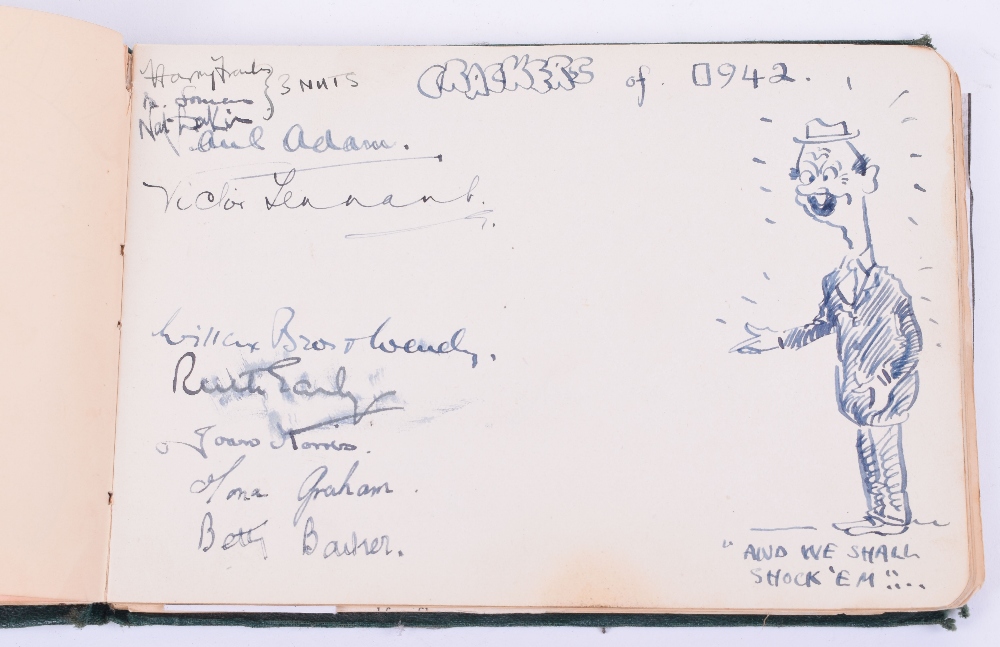 CRACKERS of 1942.
Harry
} 3 NUTS
Nat
Paul Adam.
Victor Tennant.
Bros + Wendy.
Ruth
Joan Norris.
Mona Graham.
Betty Barker.
"AND WE SHALL
SHOCK 'EM"...